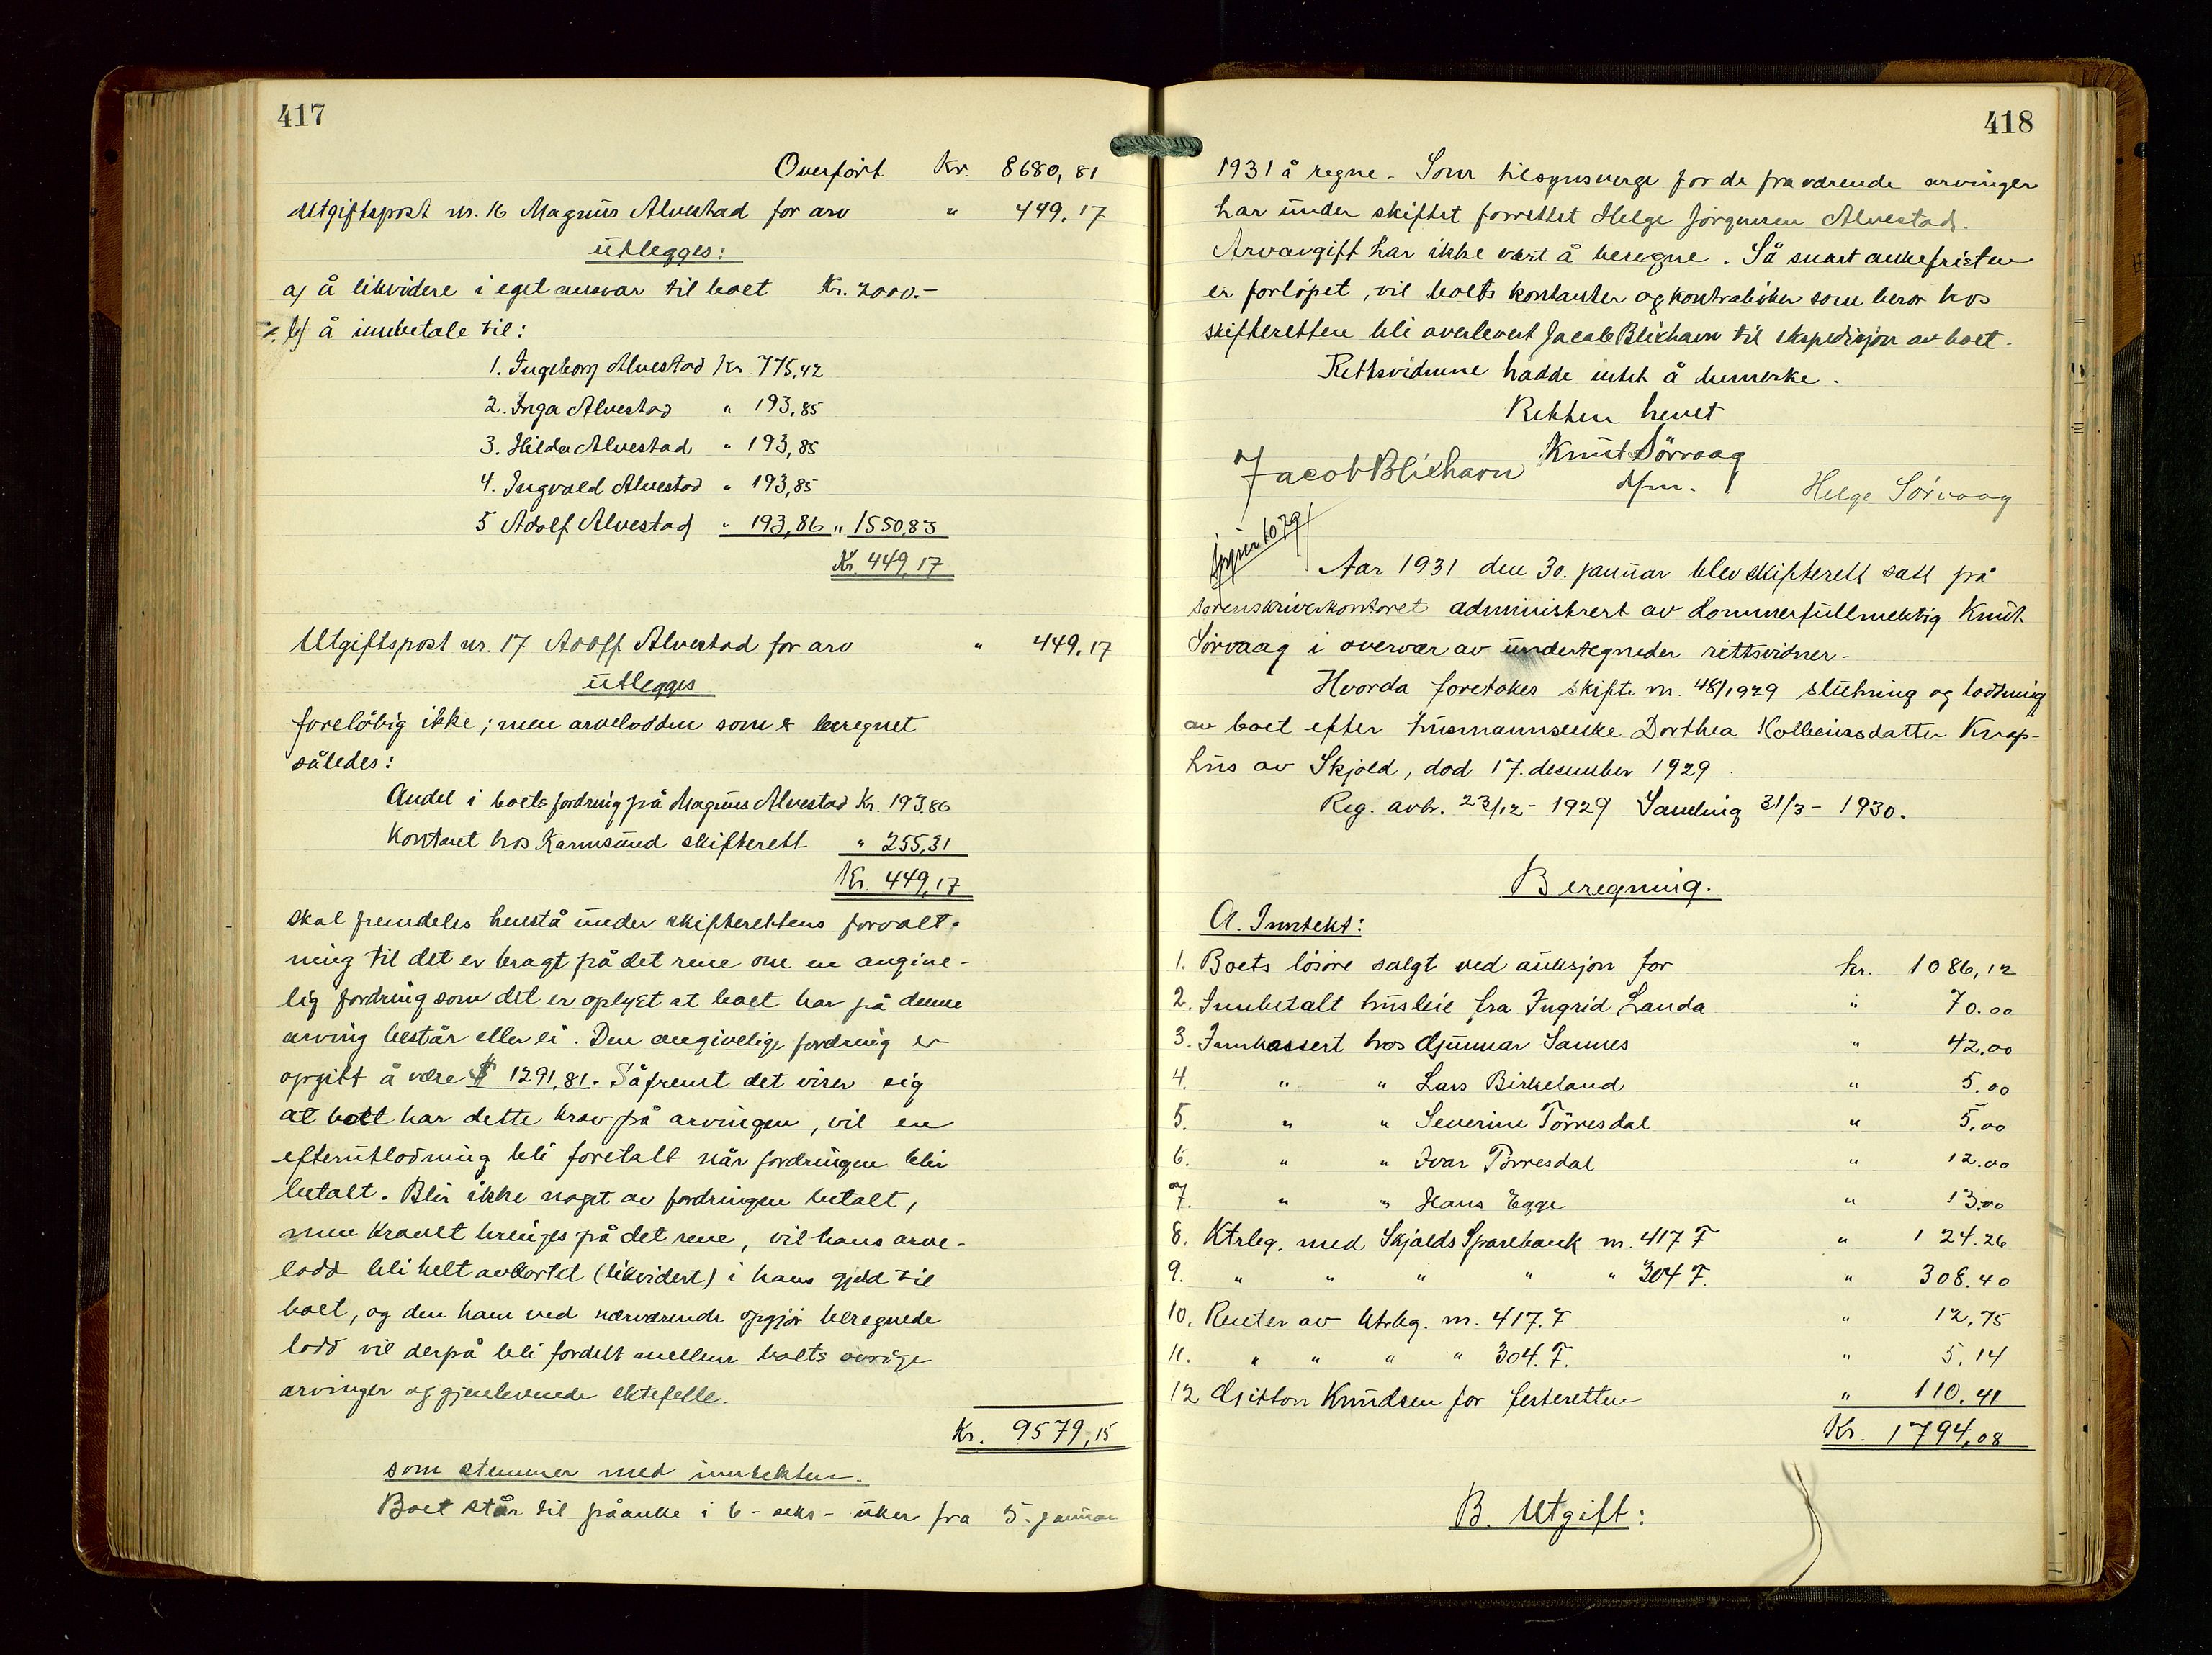 417
Overført Kr. 8680,81
Utgiftspost nr. 16 Magnus Alvestad for arv " 449.17
utlegges:
a) å likvidere i eget ansvar til boet Kr. 2000.-
÷ b) å innbetale til:
1. Ingeborg Alvestad Kr. 775,42
2. Inga Alvestad " 193,85
3. Hilda Alvestad " 193,85
4. Ingvald Alvestad " 193,85
5 Adolf Alvestad " 193,86 " 1550,83
Kr. 449,17
Utgiftspost nr. 17 Adolf Alvestad for arv " 449.17
utlegges
foreløbig ikke; men arvelodden som er beregnet
således:
Andel i boets fordring på Magnus Alvestad Kr. 193.86
Kontant hos Karmsund skifterett " 255,31
Kr. 449,17
skal fremdeles henstå under skifterettens forvalt-
ning til det er bragt på det rene om en angive-
lig fordring som det er oplyst at boet har på denne
arving består eller ei. Den angivelige fordring er
opgitt å være $ 1291,81. Såfremt det viser sig
at boet har dette krav på arvingen, vil en
efterutlodning bli foretatt når fordringen blir
betalt. Blir ikke noget av fordringen betalt,
men kravet bringes på det rene, vil hans arve-
lodd bli helt avkortet (likvidert) i hans gjeld til
boet, og den ham ved nærværende opgjør beregnede
lodd vil derpå bli fordelt mellem boets øvrige
arvinger og gjenlevende ektefelle.
Kr. 9579,15
som stemmer med inntekten.
Boet står til påanke i 6 - seks - uker fra 5. januar
418
1931 å regne. Som tilsynsverge for de fraværende arvinger
har under skiftet forrettet Helge Jørgensen Alvestad.
Arvavgift har ikke vært å beregne. Så snart ankefristen
er forløpet, vil boets kontanter og kontrabøker som beror hos
skifteretten bli overlevert Jacob Blikhavn til ekspedisjon av boet.
Rettsvidnene hadde intet å bemerke.
Retten hevet
Knut Sørvaag
Jacob Blikhavn d/fm. Helge Sørvaag
Aar 1931 den 30. januar blev skifterett satt på
sorenskriverkontoret administrert av dommerfullmektig Knut
Sørvaag i overvær av undertegnede rettsvidner.
Hvorda foretokes skifte nr. 48/1929 slutning og lodning
av boet efter husmannsenke Dorthea Kolbeinsdatter Knap-
hus av Skjold, død 17. desember 1929.
Reg. avh. 23/12 - 1929 Samling 31/3 - 1930.
Beregning.
A. Inntekt:
1. Boets løsøre salgt ved auksjon for kr. 1086,12
2. Innbetalt husleie fra Ingrid Landa " 70.00
3. Innkassert hos Gunnar Sannes " 42,00
4. " " Lars Birkeland " 5.00
5. " " Severine Tørresdal " 5,00
6. " " Ivar Tørresdal " 12.00
7. " " Hans Egge " 13.00
8. Ktrbg. med Skjolds Sparebank nr. 417 F " 124.26
9. " " " " " 304 F. " 308.40
10. Renter av ktrbg. nr. 417. F " 12,75
11. " " " " 304. F. " 5,14
12 Gitton Knudsen for festeretten " 110.41
Kr. 1794,08
B. Utgift: